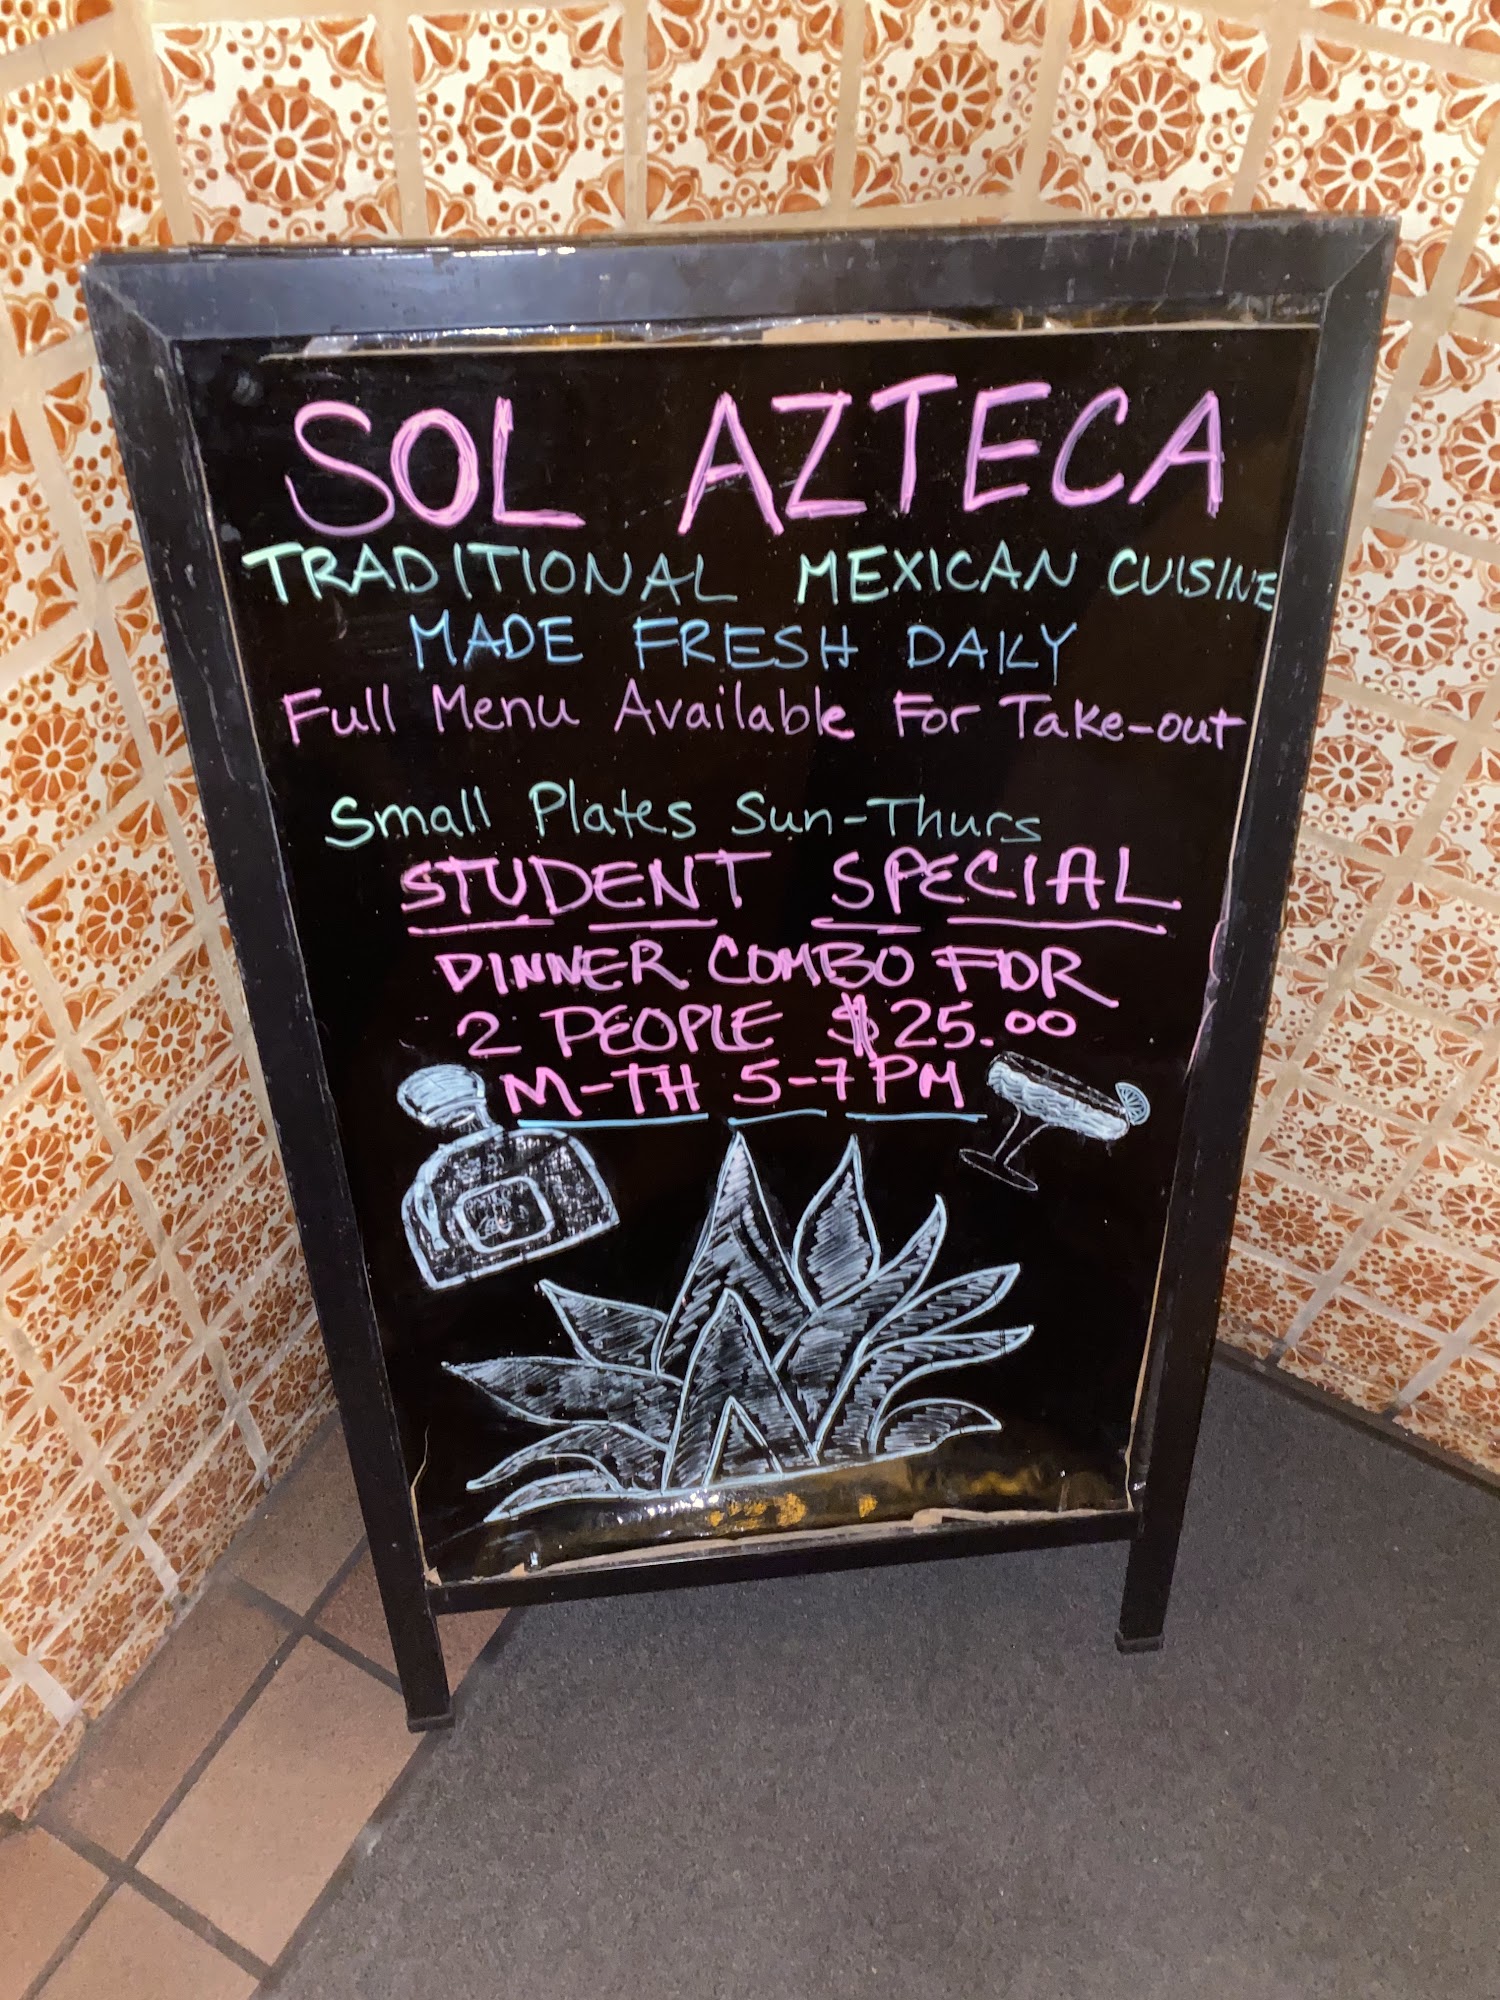 SOL AZTECA
TRADITIONAL MEXICAN CUISINE
MADE FRESH DAILY
Full Menu Available For Take-out
Small Plates Sun-Thurs
STUDENT SPECIAL
DINNER COMBO FOR
2 PEOPLE $25.00
M-TH 5-7PM